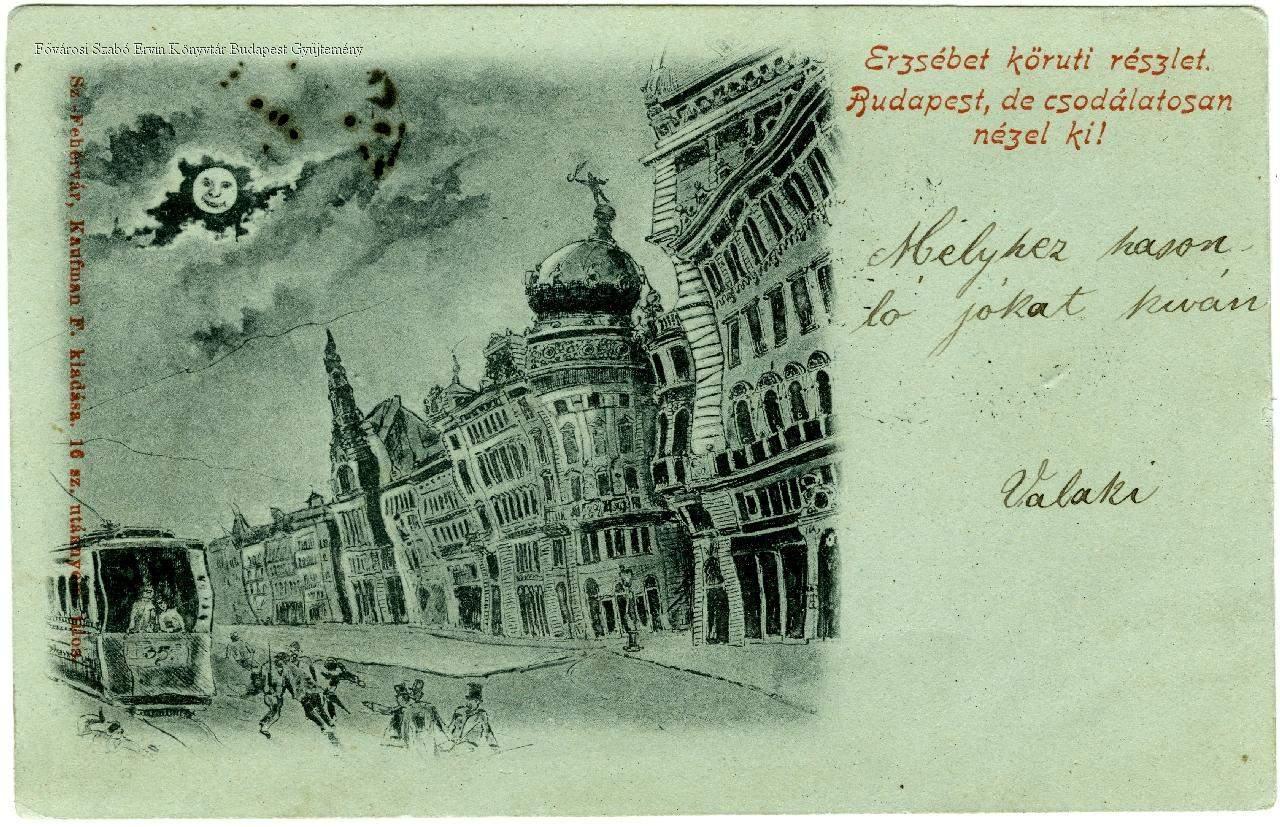 Fővárosi Szabó Ervin Könyvtár Budapest Gyűjtemény
Erzsébet köruti részlet.
Budapest, de csodálatosan
nézel ki!
Mélyhez hason-
ló jókat kiván
Valaki
Sz.-Fehérvár, Kaufman F. kiadása. 16 sz.
35